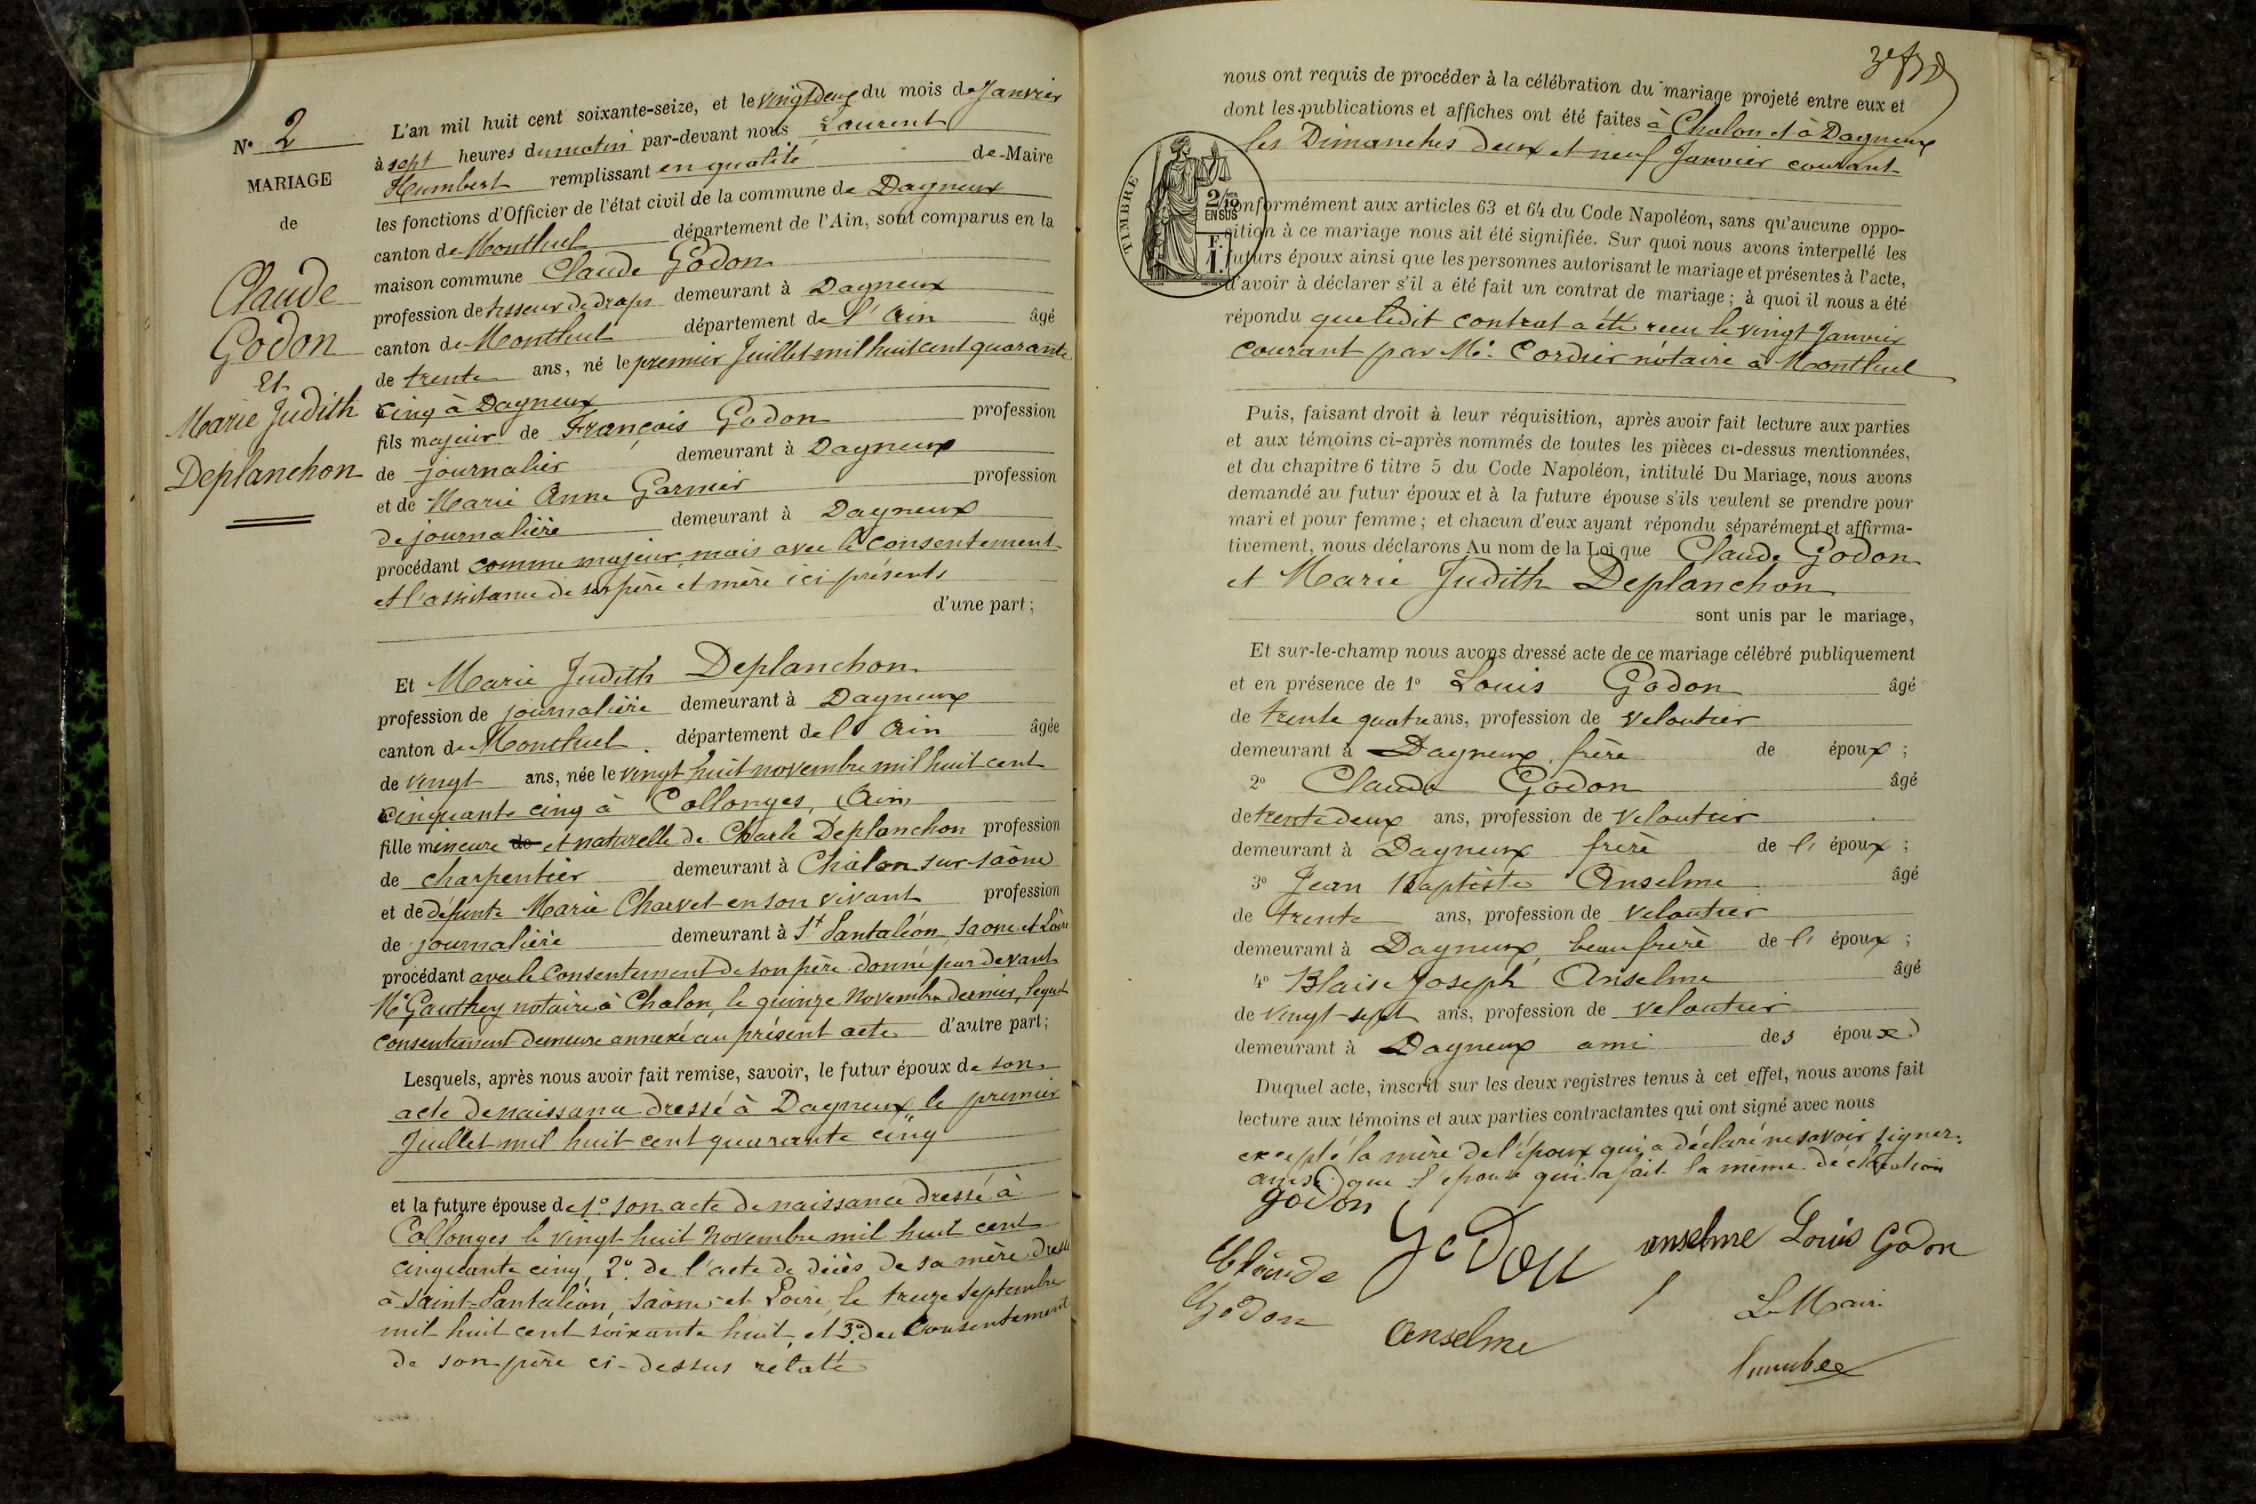 N° 2
MARIAGE
de
Claude
Godon
Et
Marie Judith
Deplanchon
L'an mil huit cent soixante-seize, et le vingt deux du mois de Janvier
à sept heures du matin par-devant nous Laurent
Humbert remplissant en qualité de Maire
les fonctions d'Officier de l'état civil de la commune de Dagneux
canton de Montluel département de l'Ain, sont comparus en la
maison commune Claude Godon
profession de tisseur de draps demeurant à Dagneux
canton de Montluel département de l'Ain âgé
de trente ans, né le premier Juillet mil huit cent quarante
cinq à Dagneux
fils majeur de François Godon profession
de journalier demeurant à Dagneux
et de Marie Anne Garnier profession
de journalière demeurant à Dagneux
procédant comme majeur, mais avec le consentement
et l'assistance de ses père et mère ici présents
d'une part;
Et Marie Judith Deplanchon
profession de journalière demeurant à Dagneux
canton de Montluel département de l'Ain âgée
de vingt ans, née le vingt huit novembre mil huit cent
cinquante cinq à Collonges, Ain
fille mineure de et naturelle de Charle Deplanchon profession
de charpentier demeurant à Châlon sur saône
et de défunte Marie Charvet en son vivant profession
de journalière demeurant à St Pantaléon, saone et Loire
procédant avec le Consentement de son père donné par devant
Me Gauthey notaire à Chalon, le quinze Novembre dernier, lequel
consentement demeure annexé au présent acte d'autre part;
Lesquels, après nous avoir fait remise, savoir, le futur époux de son
acte de naissance dressé à Dagneux, le premier
Juillet mil huit cent quarante cinq
et la future épouse de 1° son acte de naissance dressé à
Collonges le vingt huit Novembre mil huit cent
cinquante cinq, 2° de l'acte de décès de sa mère dressé
à Saint-Pantaléon, Saône et Loire, le treize Septembre
mil huit cent soixante huit, et 3° du Consentement
de son père ci-dessus relaté
nous ont requis de procéder à la célébration du mariage projeté entre eux et
dont les publications et affiches ont été faites à Chalon et à Dagneux
les Dimanches deux et neuf Janvier courant
TIMBRE
2/10 EN SUS
F.
1.
conformément aux articles 63 et 64 du Code Napoléon, sans qu'aucune oppo-
sition à ce mariage nous ait été signifiée. Sur quoi nous avons interpellé les
futurs époux ainsi que les personnes autorisant le mariage et présentes à l'acte,
d'avoir à déclarer s'il a été fait un contrat de mariage; à quoi il nous a été
répondu que ledit contrat a été recu le vingt Janvier
courant par Me Cordier notaire à Montluel
Puis, faisant droit à leur réquisition, après avoir fait lecture aux parties
et aux témoins ci-après nommés de toutes les pièces ci-dessus mentionnées,
et du chapitre 6 titre 5 du Code Napoléon, intitulé Du Mariage, nous avons
demandé au futur époux et à la future épouse s'ils veulent se prendre pour
mari et pour femme; et chacun d'eux ayant répondu séparément et affirma-
tivement, nous déclarons Au nom de la Loi que Claude Godon
et Marie Judith Deplanchon
sont unis par le mariage,
Et sur-le-champ nous avons dressé acte de ce mariage célébré publiquement
et en présence de 1° Louis Godon âgé
de trente quatre ans, profession de veloutier
demeurant à Dagneux, frère de époux;
2° Claude Godon âgé
de trente deux ans, profession de veloutier
demeurant à Dagneux frère de l' époux;
3° Jean Baptiste Anselme âgé
de trente ans, profession de veloutier
demeurant à Dagneux, beau frère de l' époux;
4° Blaise Joseph Anselme âgé
de vingt-sept ans, profession de veloutier
demeurant à Dagneux ami des époux
Duquel acte, inscrit sur les deux registres tenus à cet effet, nous avons fait
lecture aux témoins et aux parties contractantes qui ont signé avec nous
excepté la mère de l'époux qui a déclaré ne savoir signer,
ainsi que l'épouse qui a fait la même déclaration
godon
Claude
Godon
Godon
anselme Louis Godon
Anselme
Le Maire